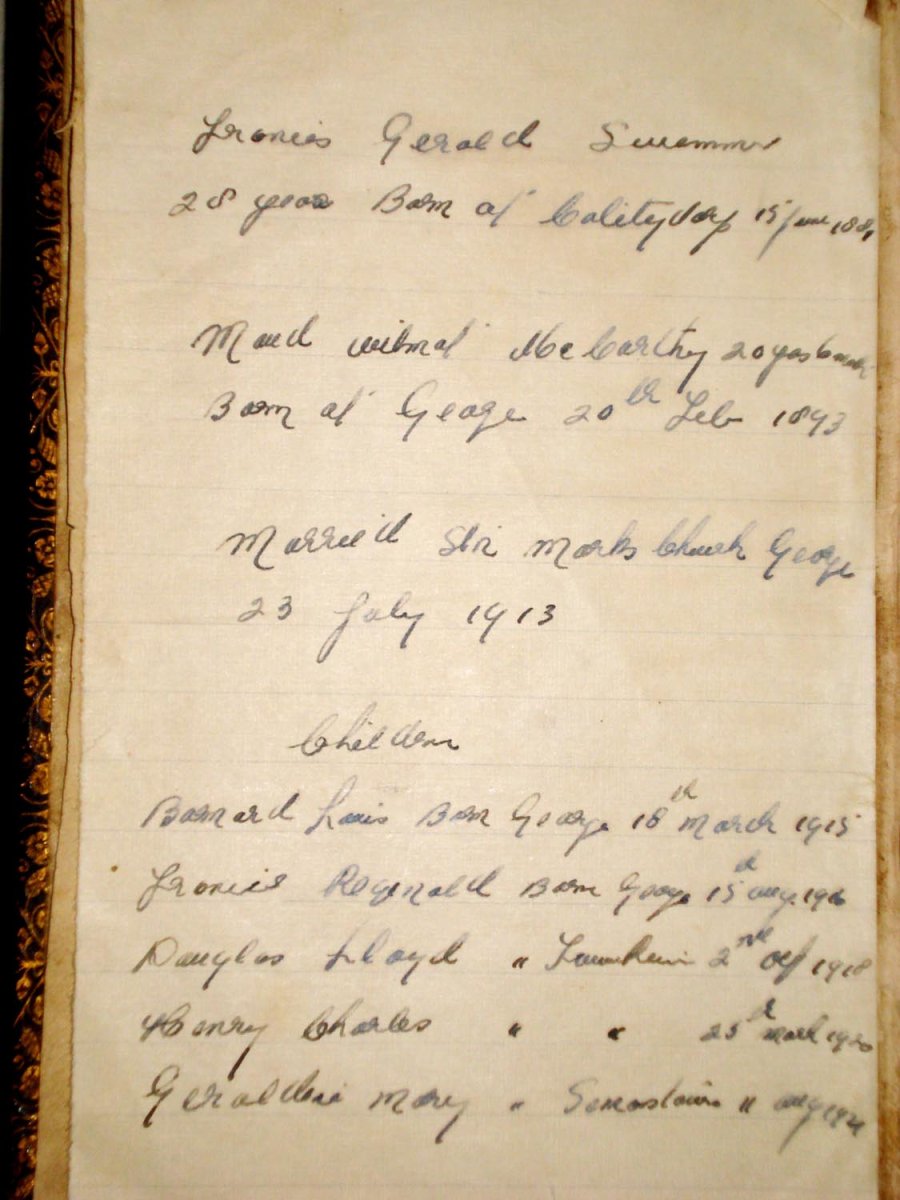 Francis Gerald Swemmer
28 years Born at Calitzdorp 15 June 188
Maud Wilmot McCarthy 20 yrs 6 month
Born at George 20th Feb 1893
Married St Marks Church George
23 July 1913
Children
Barnard Louis Born George 18th March 1915
Francis Reginald Born George 15th Aug 1916
Douglas Lloyd " 2nd Oct 1918
Henry Charles " " 25th March 1920
Geraldine Mary " " Aug 1921